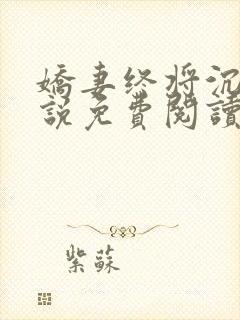 嬌妻终将沉
說免費閱讀
紫蘇